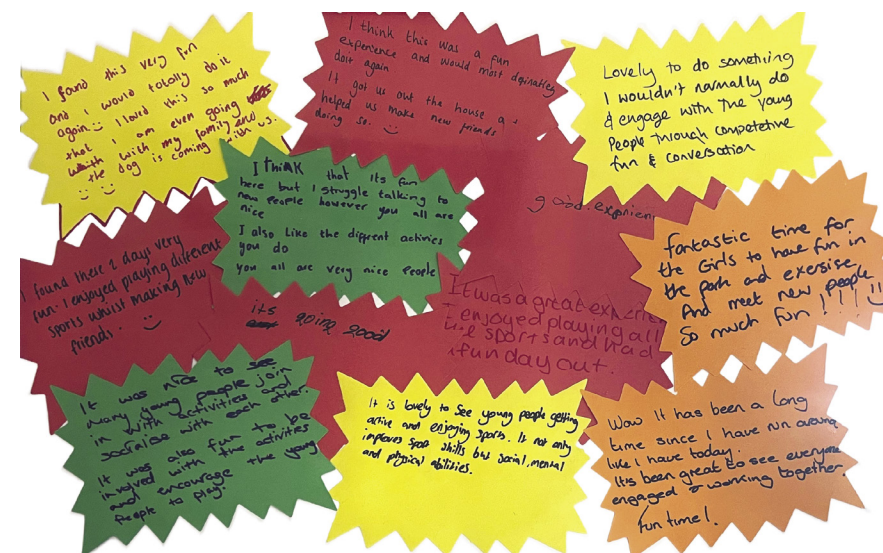 I found this very fun
and I would totally do it
again I loved this so much
that I am even going
with my family and
the dog is coming with us.
I think this was a fun
experience and would most dginatley
doit again
It got us out the house a
helped us make new friends
doing so.
Lovely to do something
I wouldn't normally do
& engage with the young
People through competetive
fun & conversation
I thinK that its fun
here but I struggle talking to
new people however you all are
nice
I also Like the diffrent activies
you do
you all are very nice People
good exprien
fantastic time for
the Girls to have fun in
the park and exersise
And meet new people
So much fun !!!!
I found these 2 days very
fun. I enjoyed playing different
sports whilst making new
friends.
its
going good
It was a great experie
I enjoyed playing all
the sports and had
a fun day out.
It was nice to see
many young people join
in with activities and
socialise with each other.
It was also fun to be
involved with the activities
and encourage the young
people to play.
It is lovely to see young people getting
active and enjoying sports. It not only
improves sport skills but social, mental
and physical abilities.
Wow It has been a long
time since I have run around
like I have today.
Its been great to see everyone
engaged & working together.
fun time!.